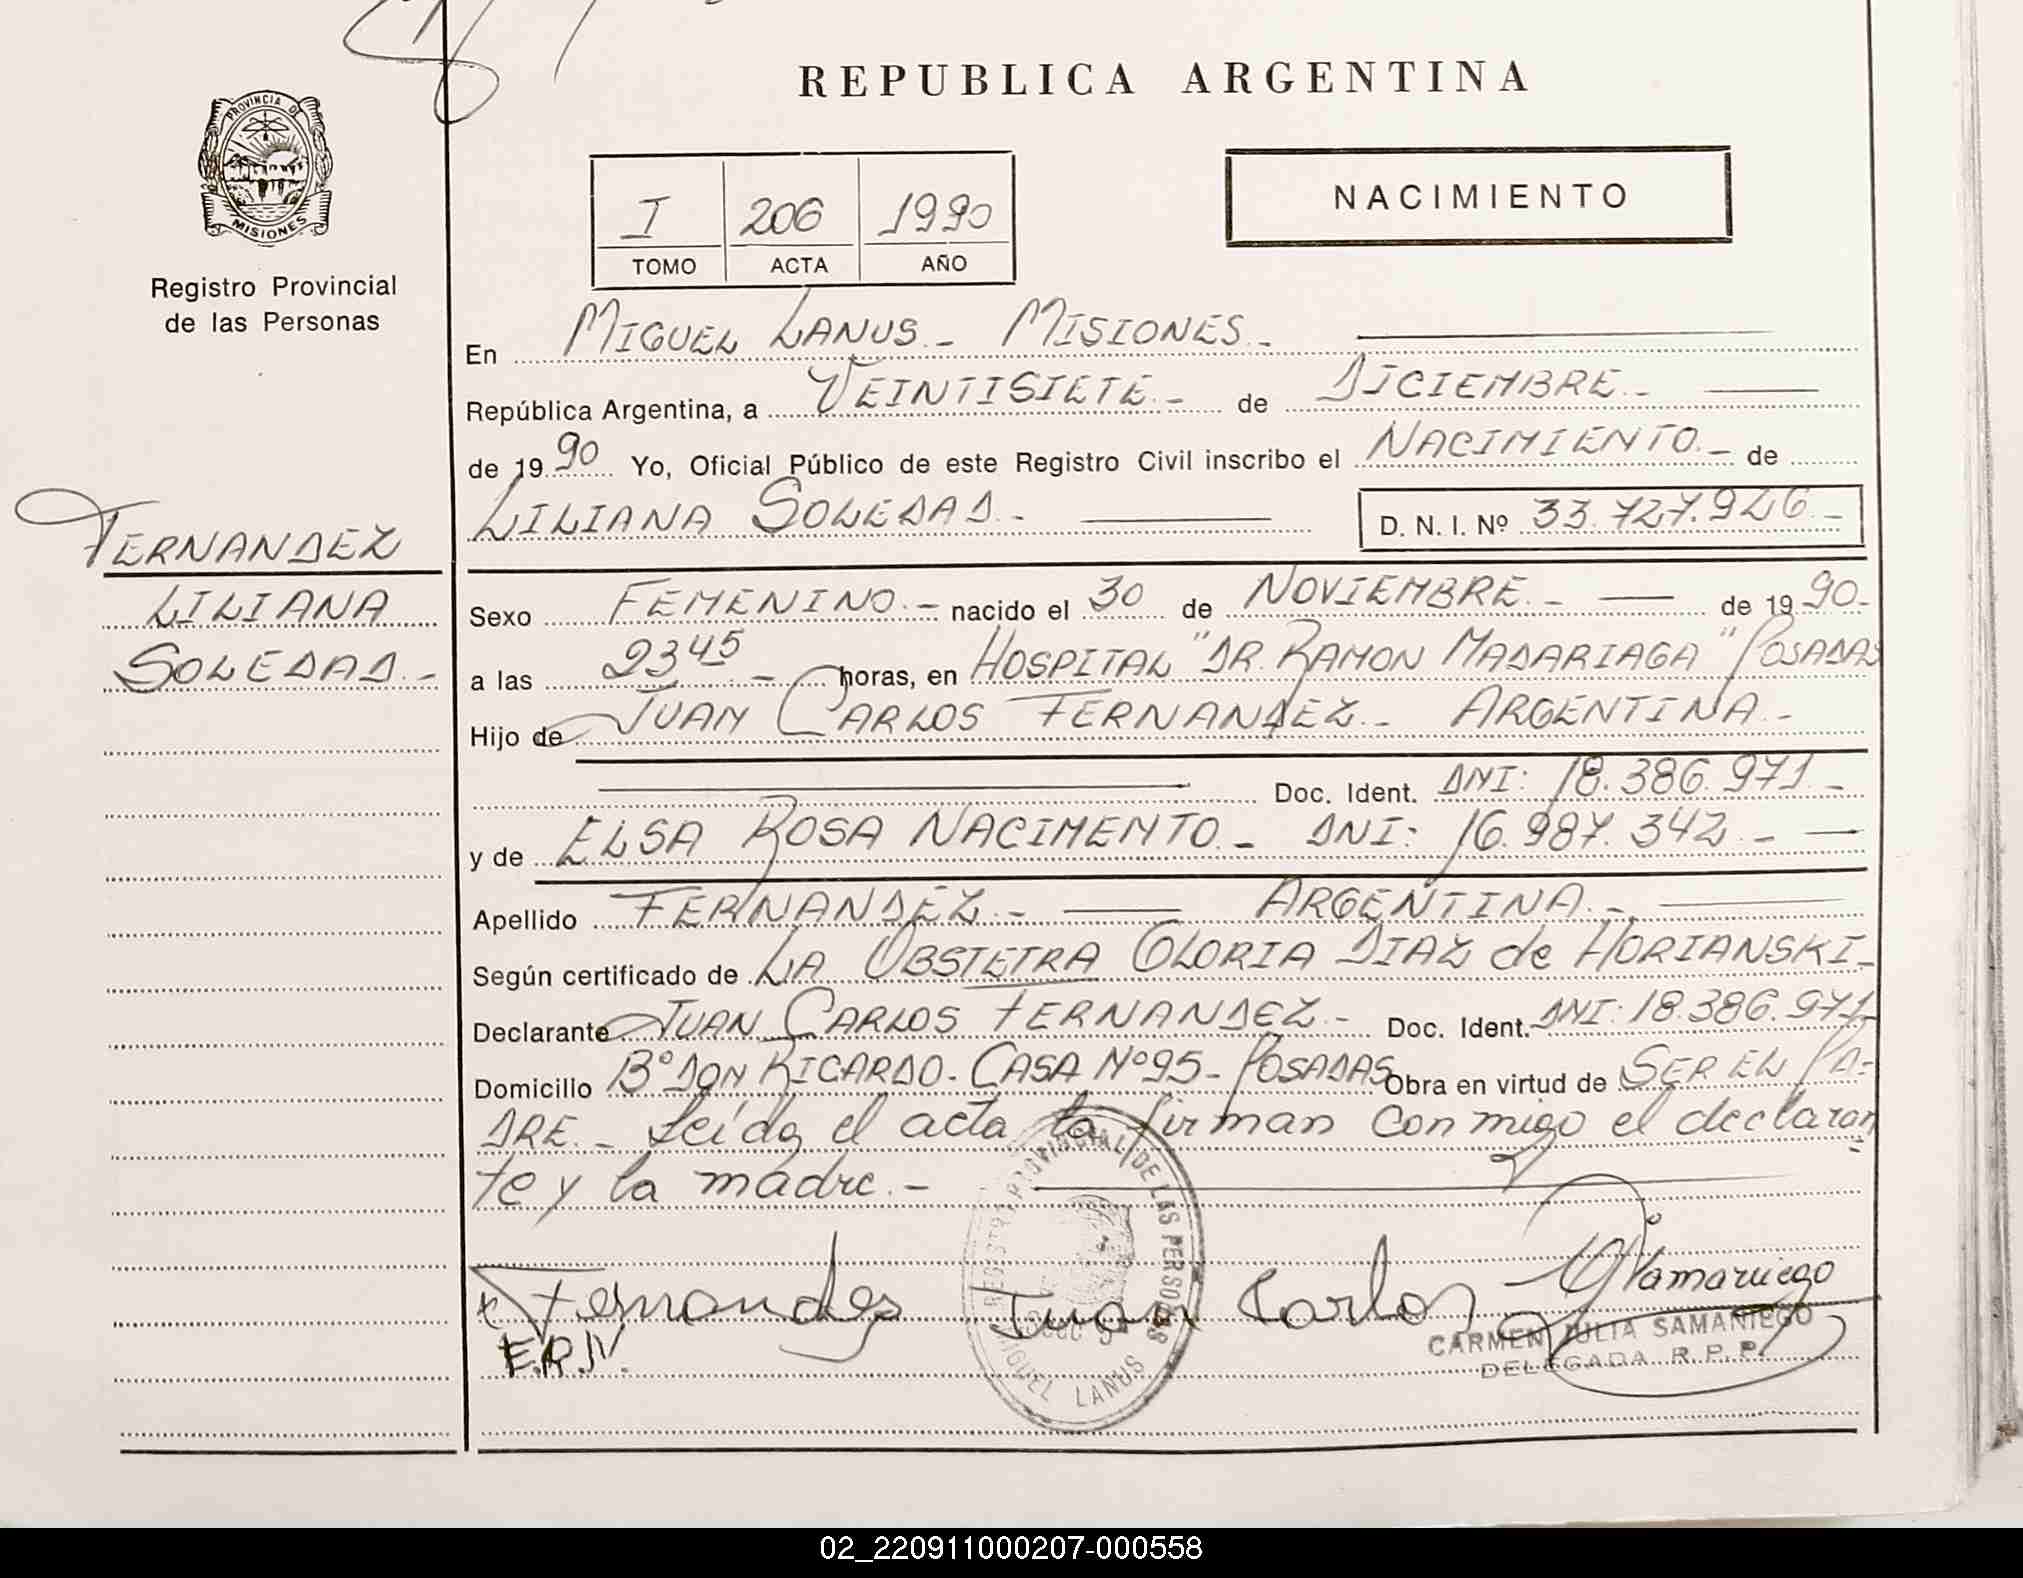 REPUBLICA ARGENTINA
PROVINCIA DE
MISIONES
Registro Provincial
de las Personas
I 206 1990
TOMO ACTA AÑO
NACIMIENTO
En MIGUEL LANUS.- MISIONES.-
República Argentina, a VEINTISIETE.- de DICIEMBRE.-
de 1990 Yo, Oficial Público de este Registro Civil inscribo el NACIMIENTO.- de
LILIANA SOLEDAD.- D. N. I. Nº 33.727.926.-
FERNANDEZ
LILIANA
SOLEDAD.-
Sexo FEMENINO.- nacido el 30 de NOVIEMBRE.- de 1990.-
a las 23 45 - horas, en HOSPITAL "DR. RAMON MADARIAGA" POSADAS
Hijo de JUAN CARLOS FERNANDEZ.- ARGENTINA.-
Doc. Ident. DNI: 18.386.971.-
y de ELSA ROSA NACIMENTO.- DNI: 16.987.342.-
Apellido FERNANDEZ.- ARGENTINA.-
Según certificado de LA OBSTETRA GLORIA DIAZ de HORIANSKI.-
Declarante JUAN CARLOS FERNANDEZ.- Doc. Ident. DNI: 18.386.971-
Domicilio Bº DON RICARDO- CASA Nº 95- POSADAS Obra en virtud de SER EL PA-
DRE.- Leída el acta la firman conmigo el declaran
te y la madre.-
REGISTRO PROVINCIAL DE LAS PERSONAS
MIGUEL LANUS
x Fernandez Juan Carlos
E.R.N.
CARMEN JULIA SAMANIEGO
DELEGADA R.P.P.
02_220911000207-000558